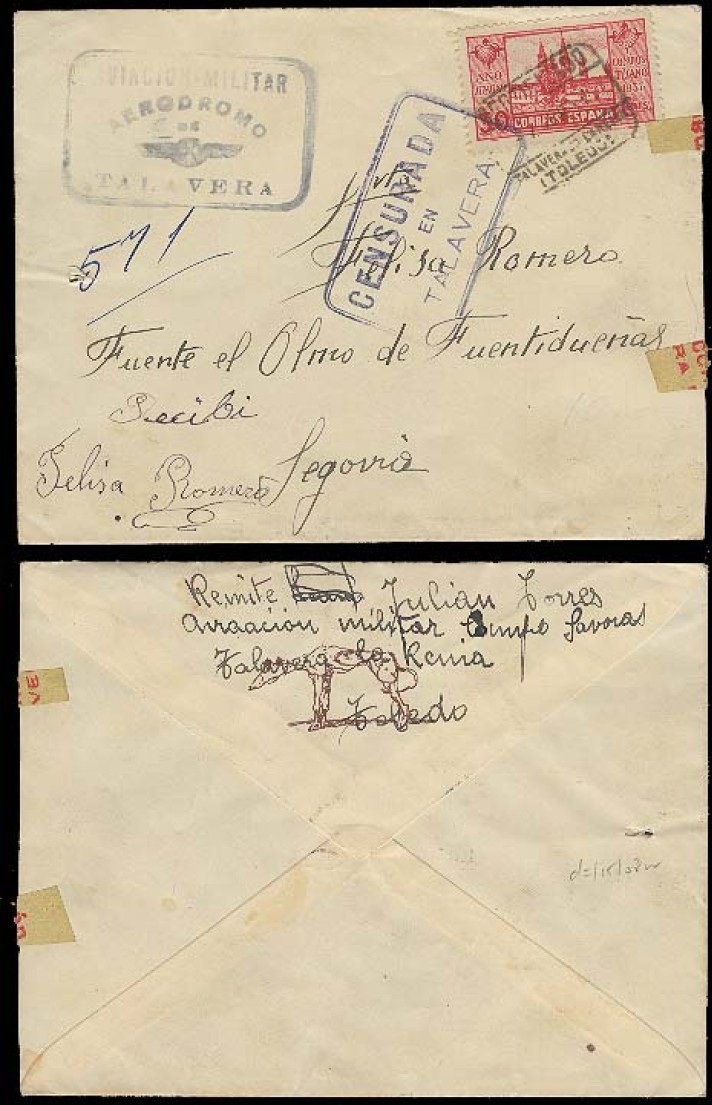 AVIACION-MILITAR
AERODROMO
DE
TALAVERA
AÑO
JUBILAR
COMPOSTELANO
1937
30
CORREOS ESPAÑA
TALAVERA
(TOLEDO)
CENSURADA
EN
TALAVERA
571
Srta
Felisa Romero
Fuente el Olmo de Fuentidueñas
Recibi
Segovia
Felisa Romero
Remite Julian Torres
Aviación militar Campo
Talavera la Reina
Toledo
VE